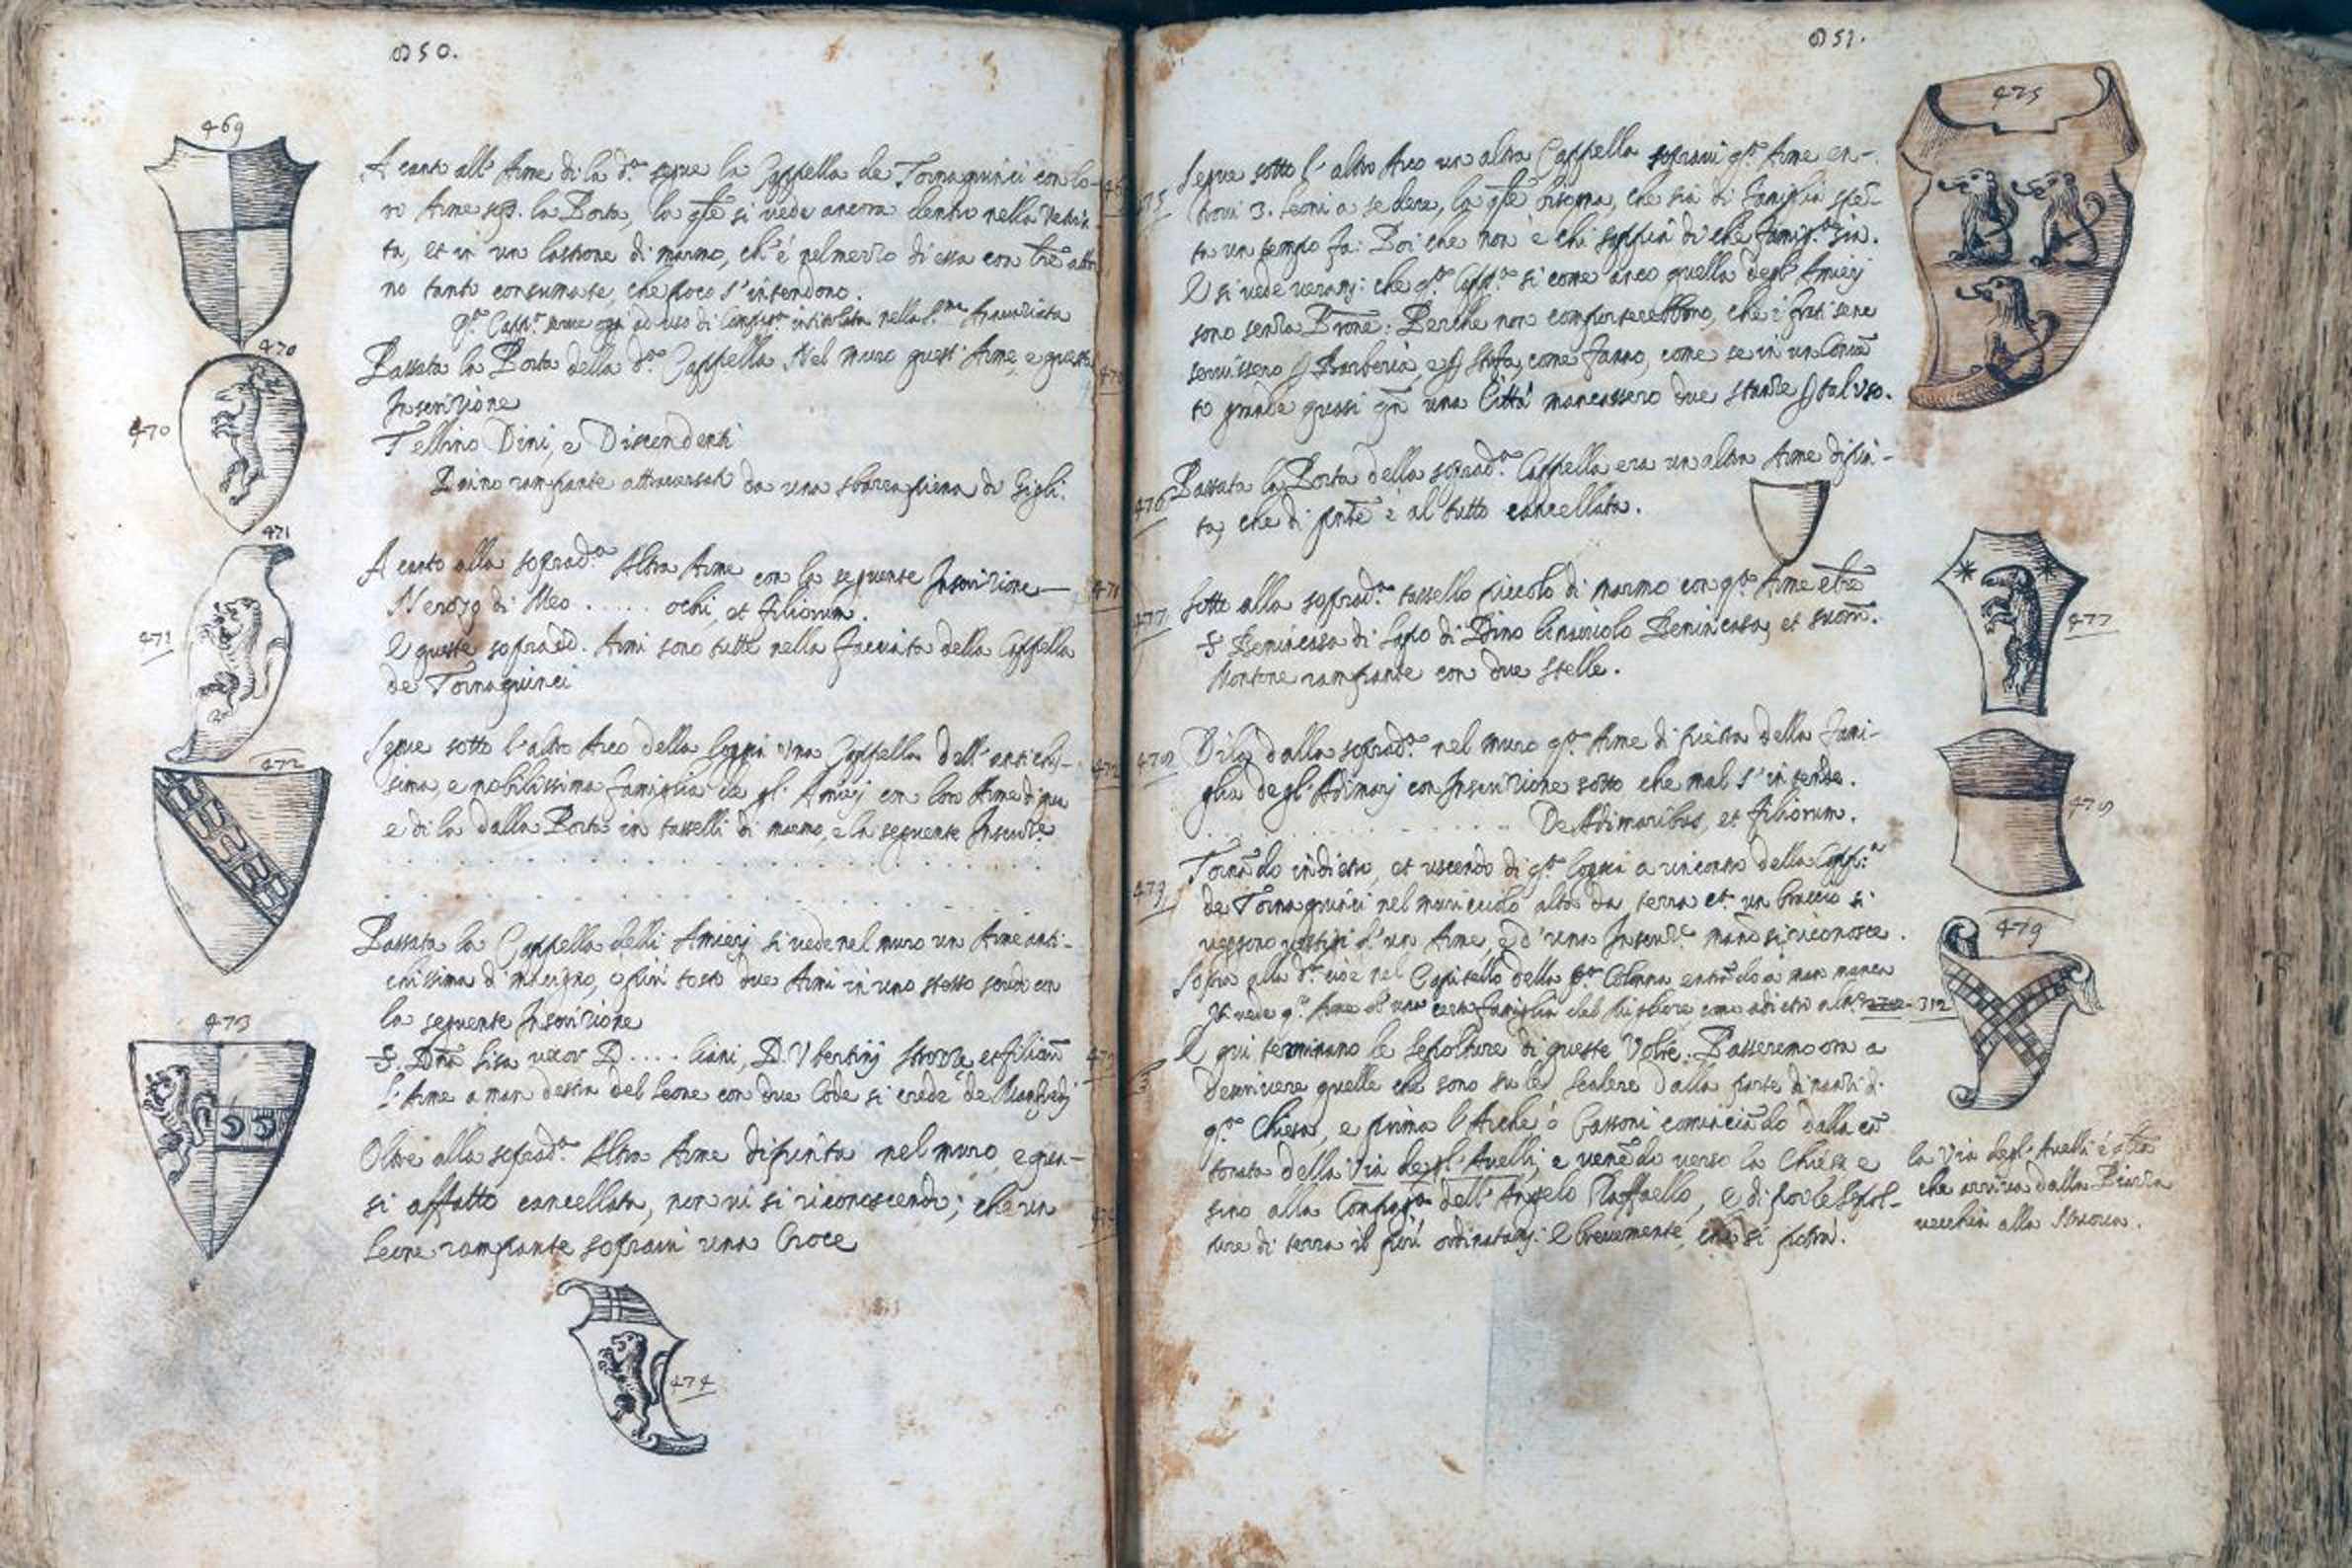 850.
469
A canto all' Arme di là d.º segue la Cappella de Tornaquinci con lo-
ro Arme sop. la Porta, la qle si vede ancora dentro nella
ta, et in un lastrone di marmo, ch' è nel mezzo di essa con tre
no tanto consumate, che poco s' intendono.
Capp.ª serve oggi ad uso di intitolata nella
470
Passata la Porta della d.ª Cappella Nel muro quest' Arme, e questa
Inscrizione
470
Tellino Dini, e Discendenti
Daino rampante attraversato da una sbarra piena di Gigli.
471
A canto alla soprad.ª Altra Arme con la seguente Inscrizione
Nerozo di Meo ...... ochi, et filiorum.
471
E queste sopradd. Armi sono tutte nella facciata della Cappella
de Tornaquinci
Segue sotto l' altro Arco della loggia una Cappella dell' antichis-
472
sima, e nobilissima famiglia de gl' Amierj con loro Arme di qua
e di la dalla Porta in tasselli di marmo, e la seguente
Passata la Cappella delli Amierj si vede nel muro un Arme anti-
chissima di macigno, o più tosto due Armi in uno stesso scudo con
la seguente Inscrizione
473
S. Dña Lisa uxor D.... liani, D. Vbertinj Strozze et filiorũ
L' Arme a man destra del Leone con due Code si crede de Manfredj
Oltre alla soprad.ª Altra Arme dipinta nel muro, e qua-
si affatto cancellata, non vi si riconoscendo; che un
Leone rampante sopravi una Croce
474
851.
475
Segue sotto l' altro Arco un altra Cappella sopravi q.ª Arme en-
trovi 3. Leoni a sedere, la qle bisogna, che sia di famiglia spen-
ta un tempo fa: Poi che non è chi sappia di che famig.ª sia.
E si vede veramj: che q.ª Capp.ª si come anco quella degl' Amierj
sono senza Prone: Perche non comporterebbono, che i frati sene
servissero p Barberia, e p Stufa, come fanno, come se in un Convẽ
to grande quasi qñ una Città mancassero due stanze p tal uso.
476
Passata la Porta della soprad.ª Cappella era un altra Arme dipin-
ta, che di pnte è al tutto cancellata.
477
Sotto alla soprad.ª tassello piccolo di marmo con q.ª Arme
S Benincasa di Lapo di Dino Benincasa, et suorũ.
477
Montone rampante con due stelle.
478
Di là dalla soprad.ª nel muro q.ª Arme di pietra della fami-
glia degl' Adimarj con Inscrizione sotto che mal s' intende.
478
De Adimaribus, et filiorum.
Tornãdo indietro, et uscendo di q.ª loggia a rincontro della Capp.ª
479
de Tornaquinci nel muricciolo alto da terra un braccio si
veggono vestigi d' un Arme, e d' una mano si riconosce.
479
Sopra alla d.ª cioè nel Capitello della Colonna entrãdo a man manca
si vede q.ª Arme d' una certa famiglia del Migliore come adietro al n.º 312
E qui terminano le Sepolture di queste Volte. Passeremo ora a
descrivere quelle che sono su le Scalere dalla parte dinanzi di
q.ª Chiesa, e prima l' Arche ò Cassoni cominciãdo dalla cã
tonata della Via degl' Avelli, e venẽdo verso la Chiesa e
sino alla Compag.ª dell' Angelo Raffaello, e di poi le Sepol-
ture di terra il più ordinatamj: e brevemente, che si potrà.
la Via degl' Avelli è
che arriva dalla Piazza
vecchia alla Nuova.